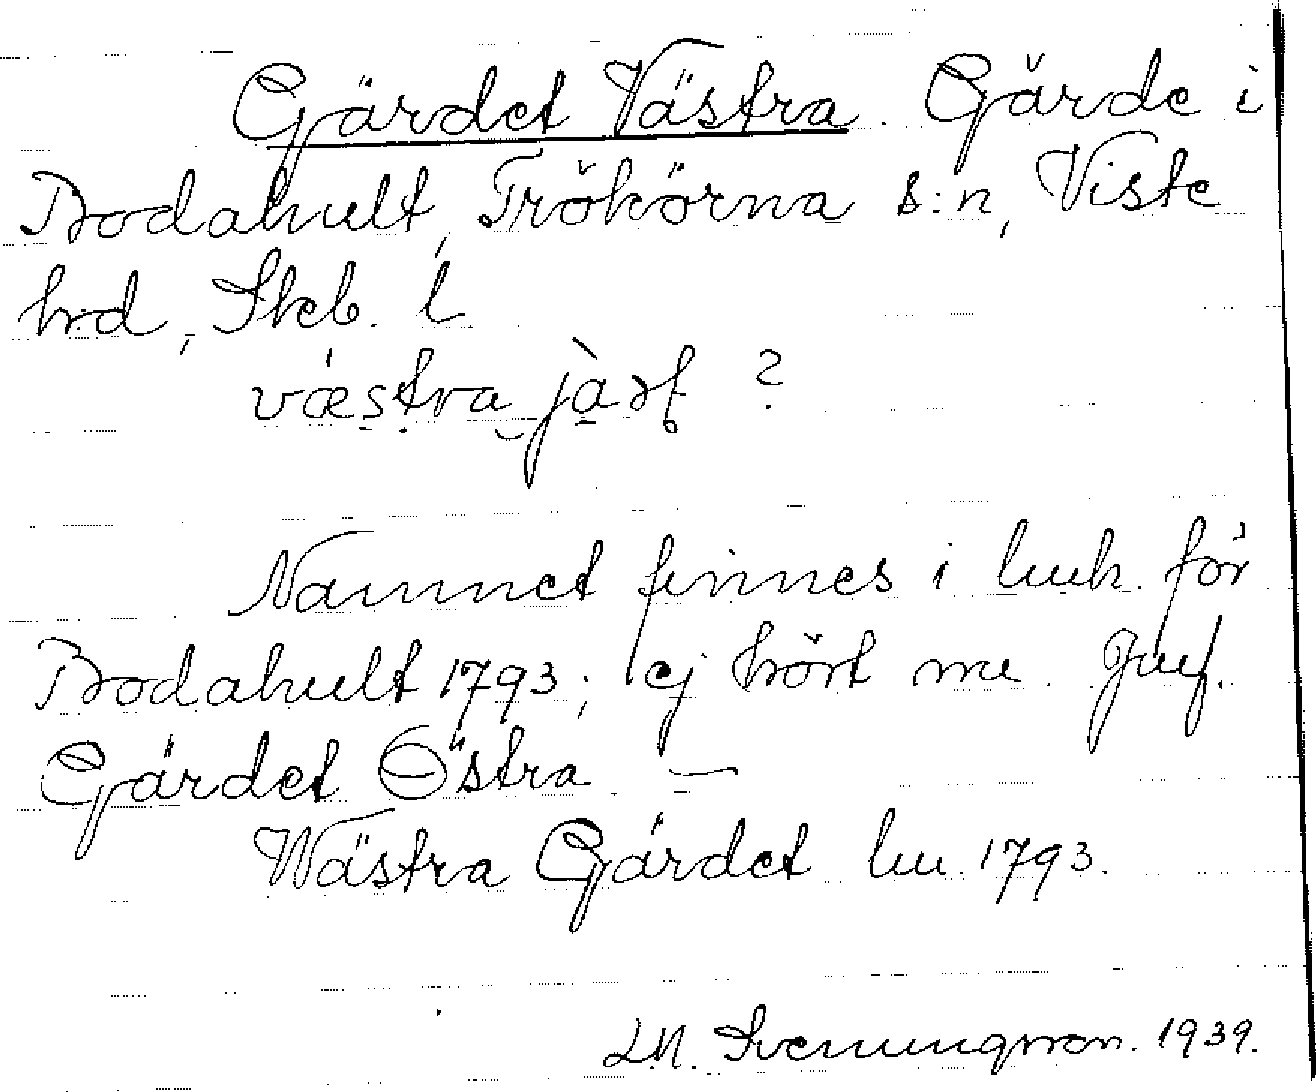 Gärdet Västra. Gärde i
Bodahult, Trökörna s:n, Viste
hrd, Skb. l.
væstra jàʀt ?
Namnet finnes i luh. för
Bodahult 1793; ej hört nu. Jmf.
Gärdet Östra. —
Wästra Gärdet lm. 1793.
Svenungsson. 1939.